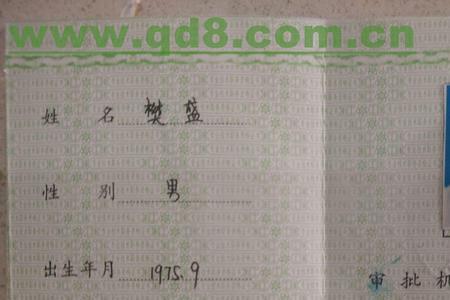 www.qd8.com.cn
姓 名 樊盛
性 别 男
出生年月 1975.9
审 批 机